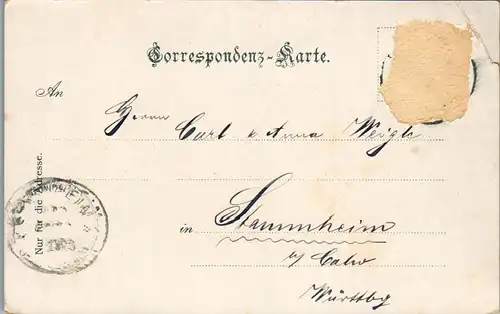 Correspondenz-Karte.
An
Herrn Carl & Anna Weigle
in Stammheim
b/ Calw
Württbg
Nur für die Adresse.